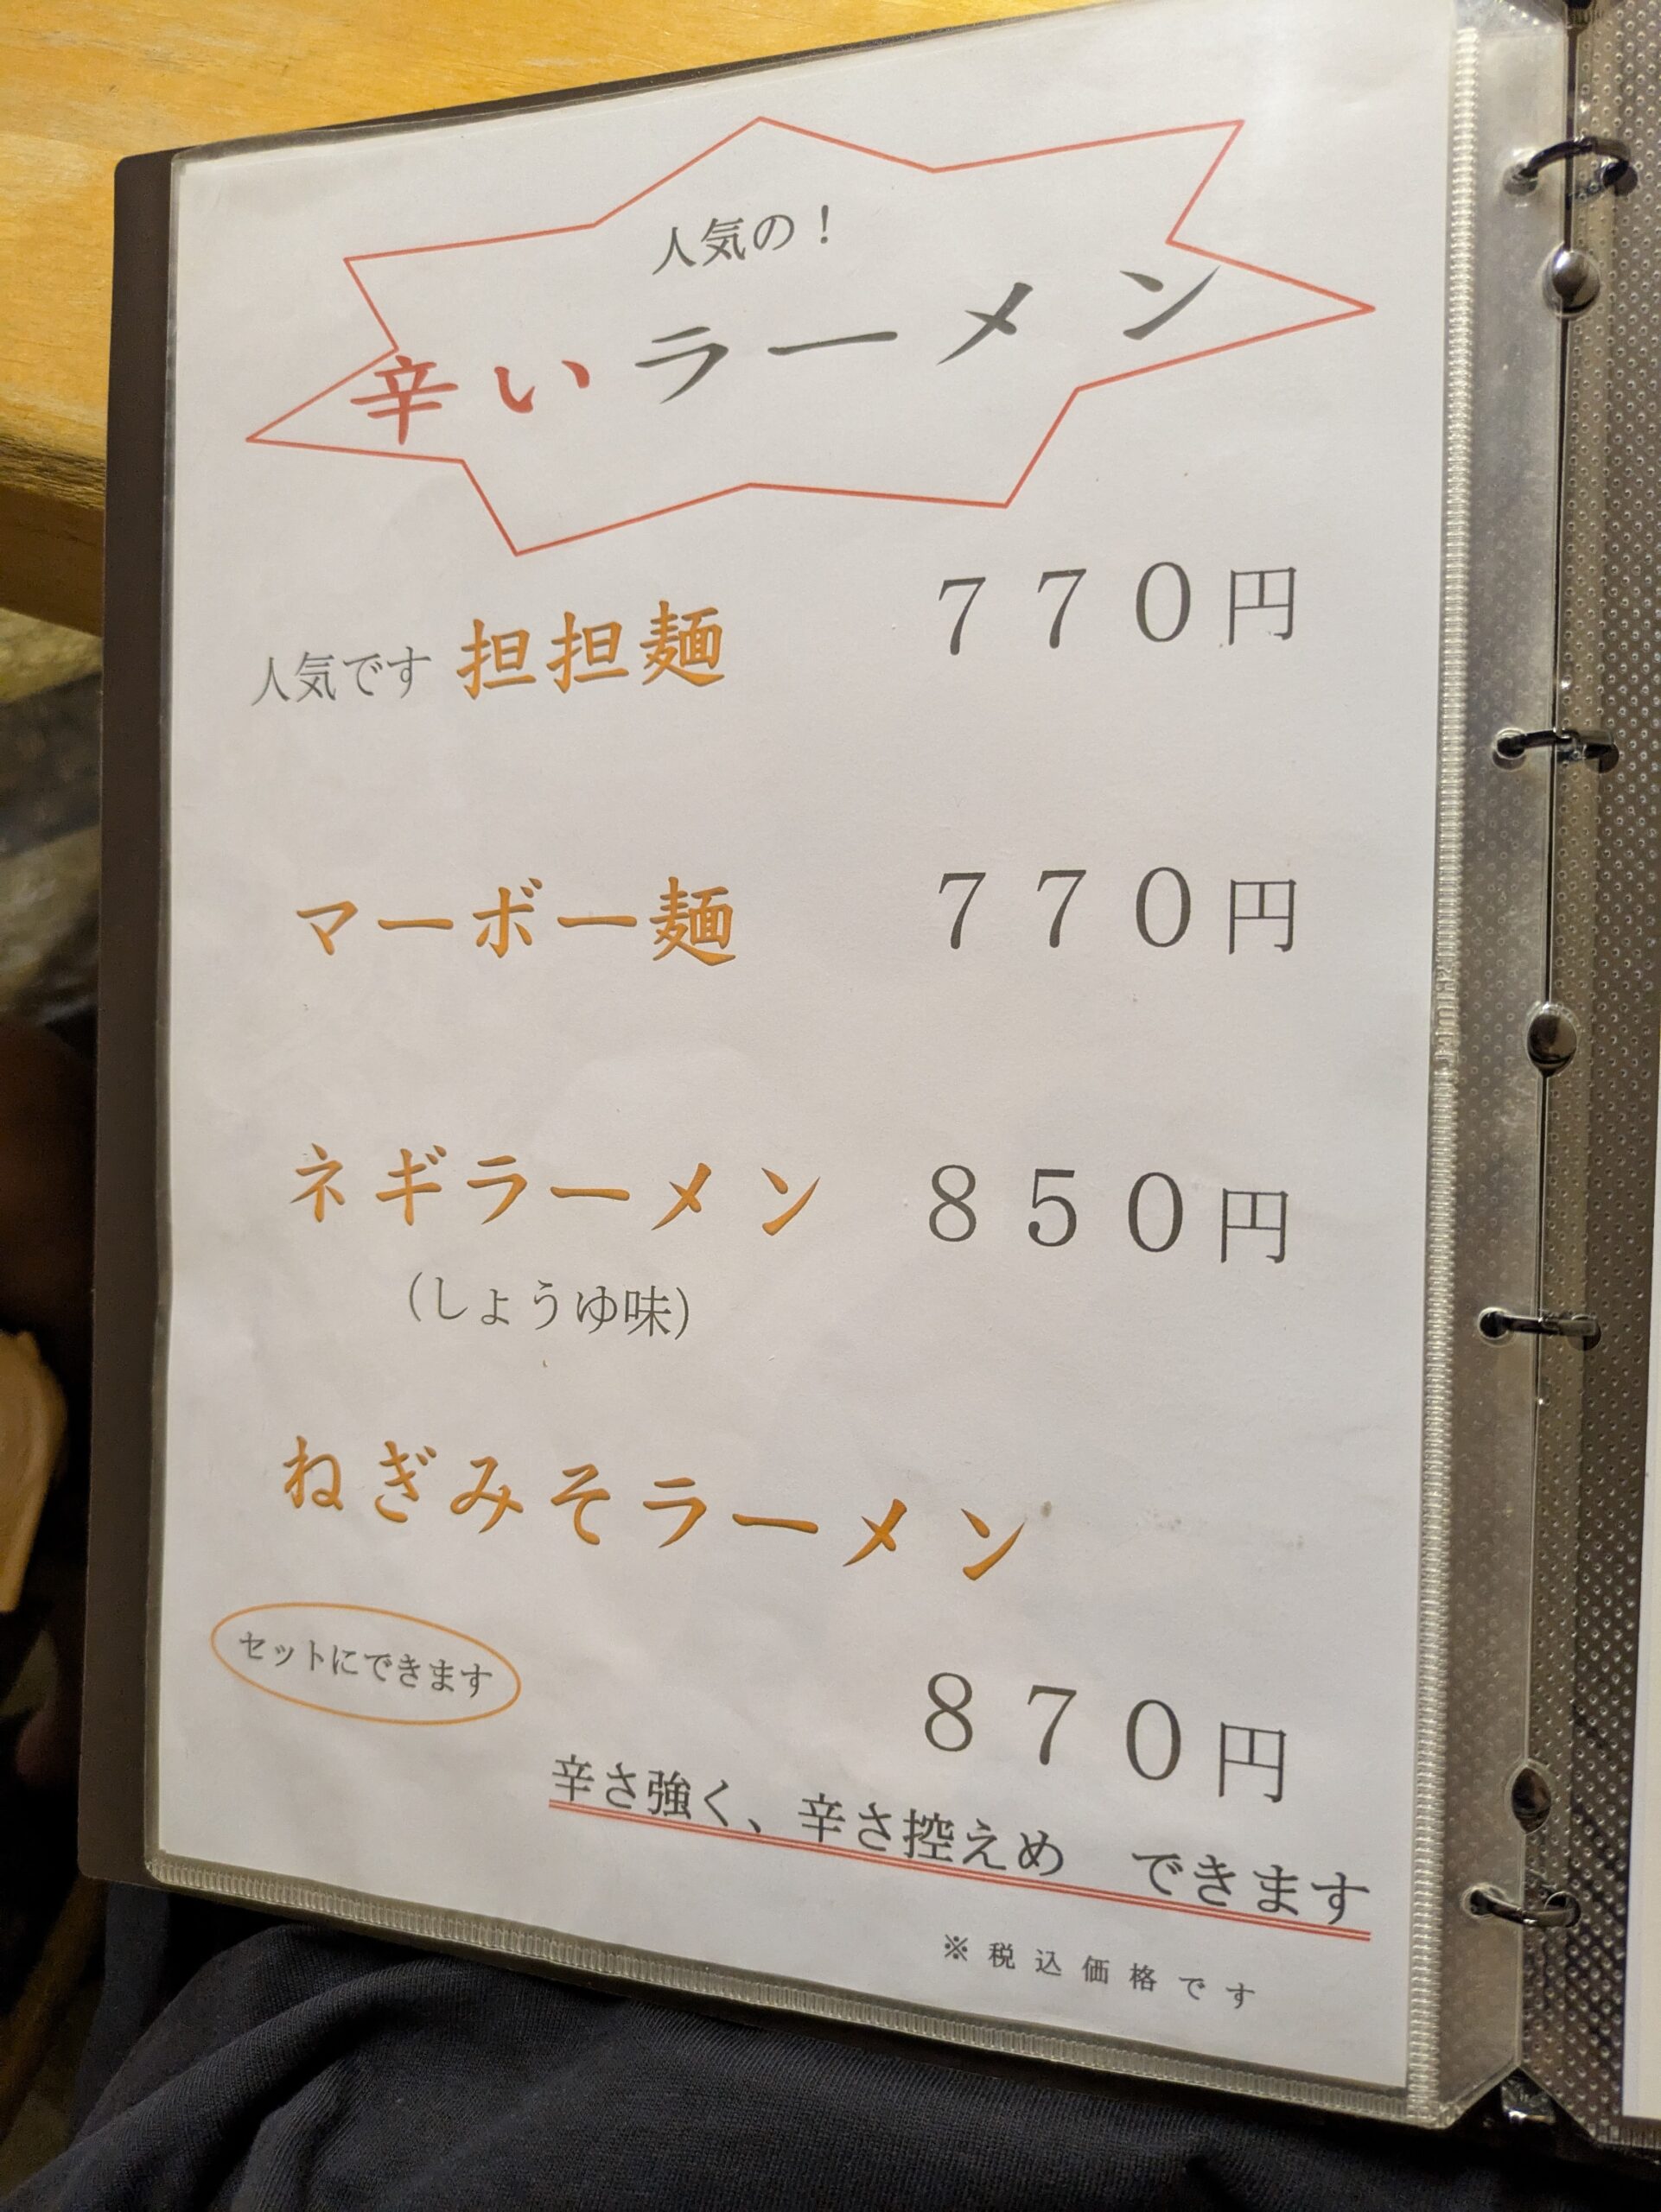 人気の！
辛いラーメン
人気です 担担麺 ７７０円
マーボー麺 ７７０円
ネギラーメン ８５０円
（しょうゆ味）
ねぎみそラーメン
セットにできます
８７０円
辛さ強く、辛さ控えめ　できます
※税込価格です